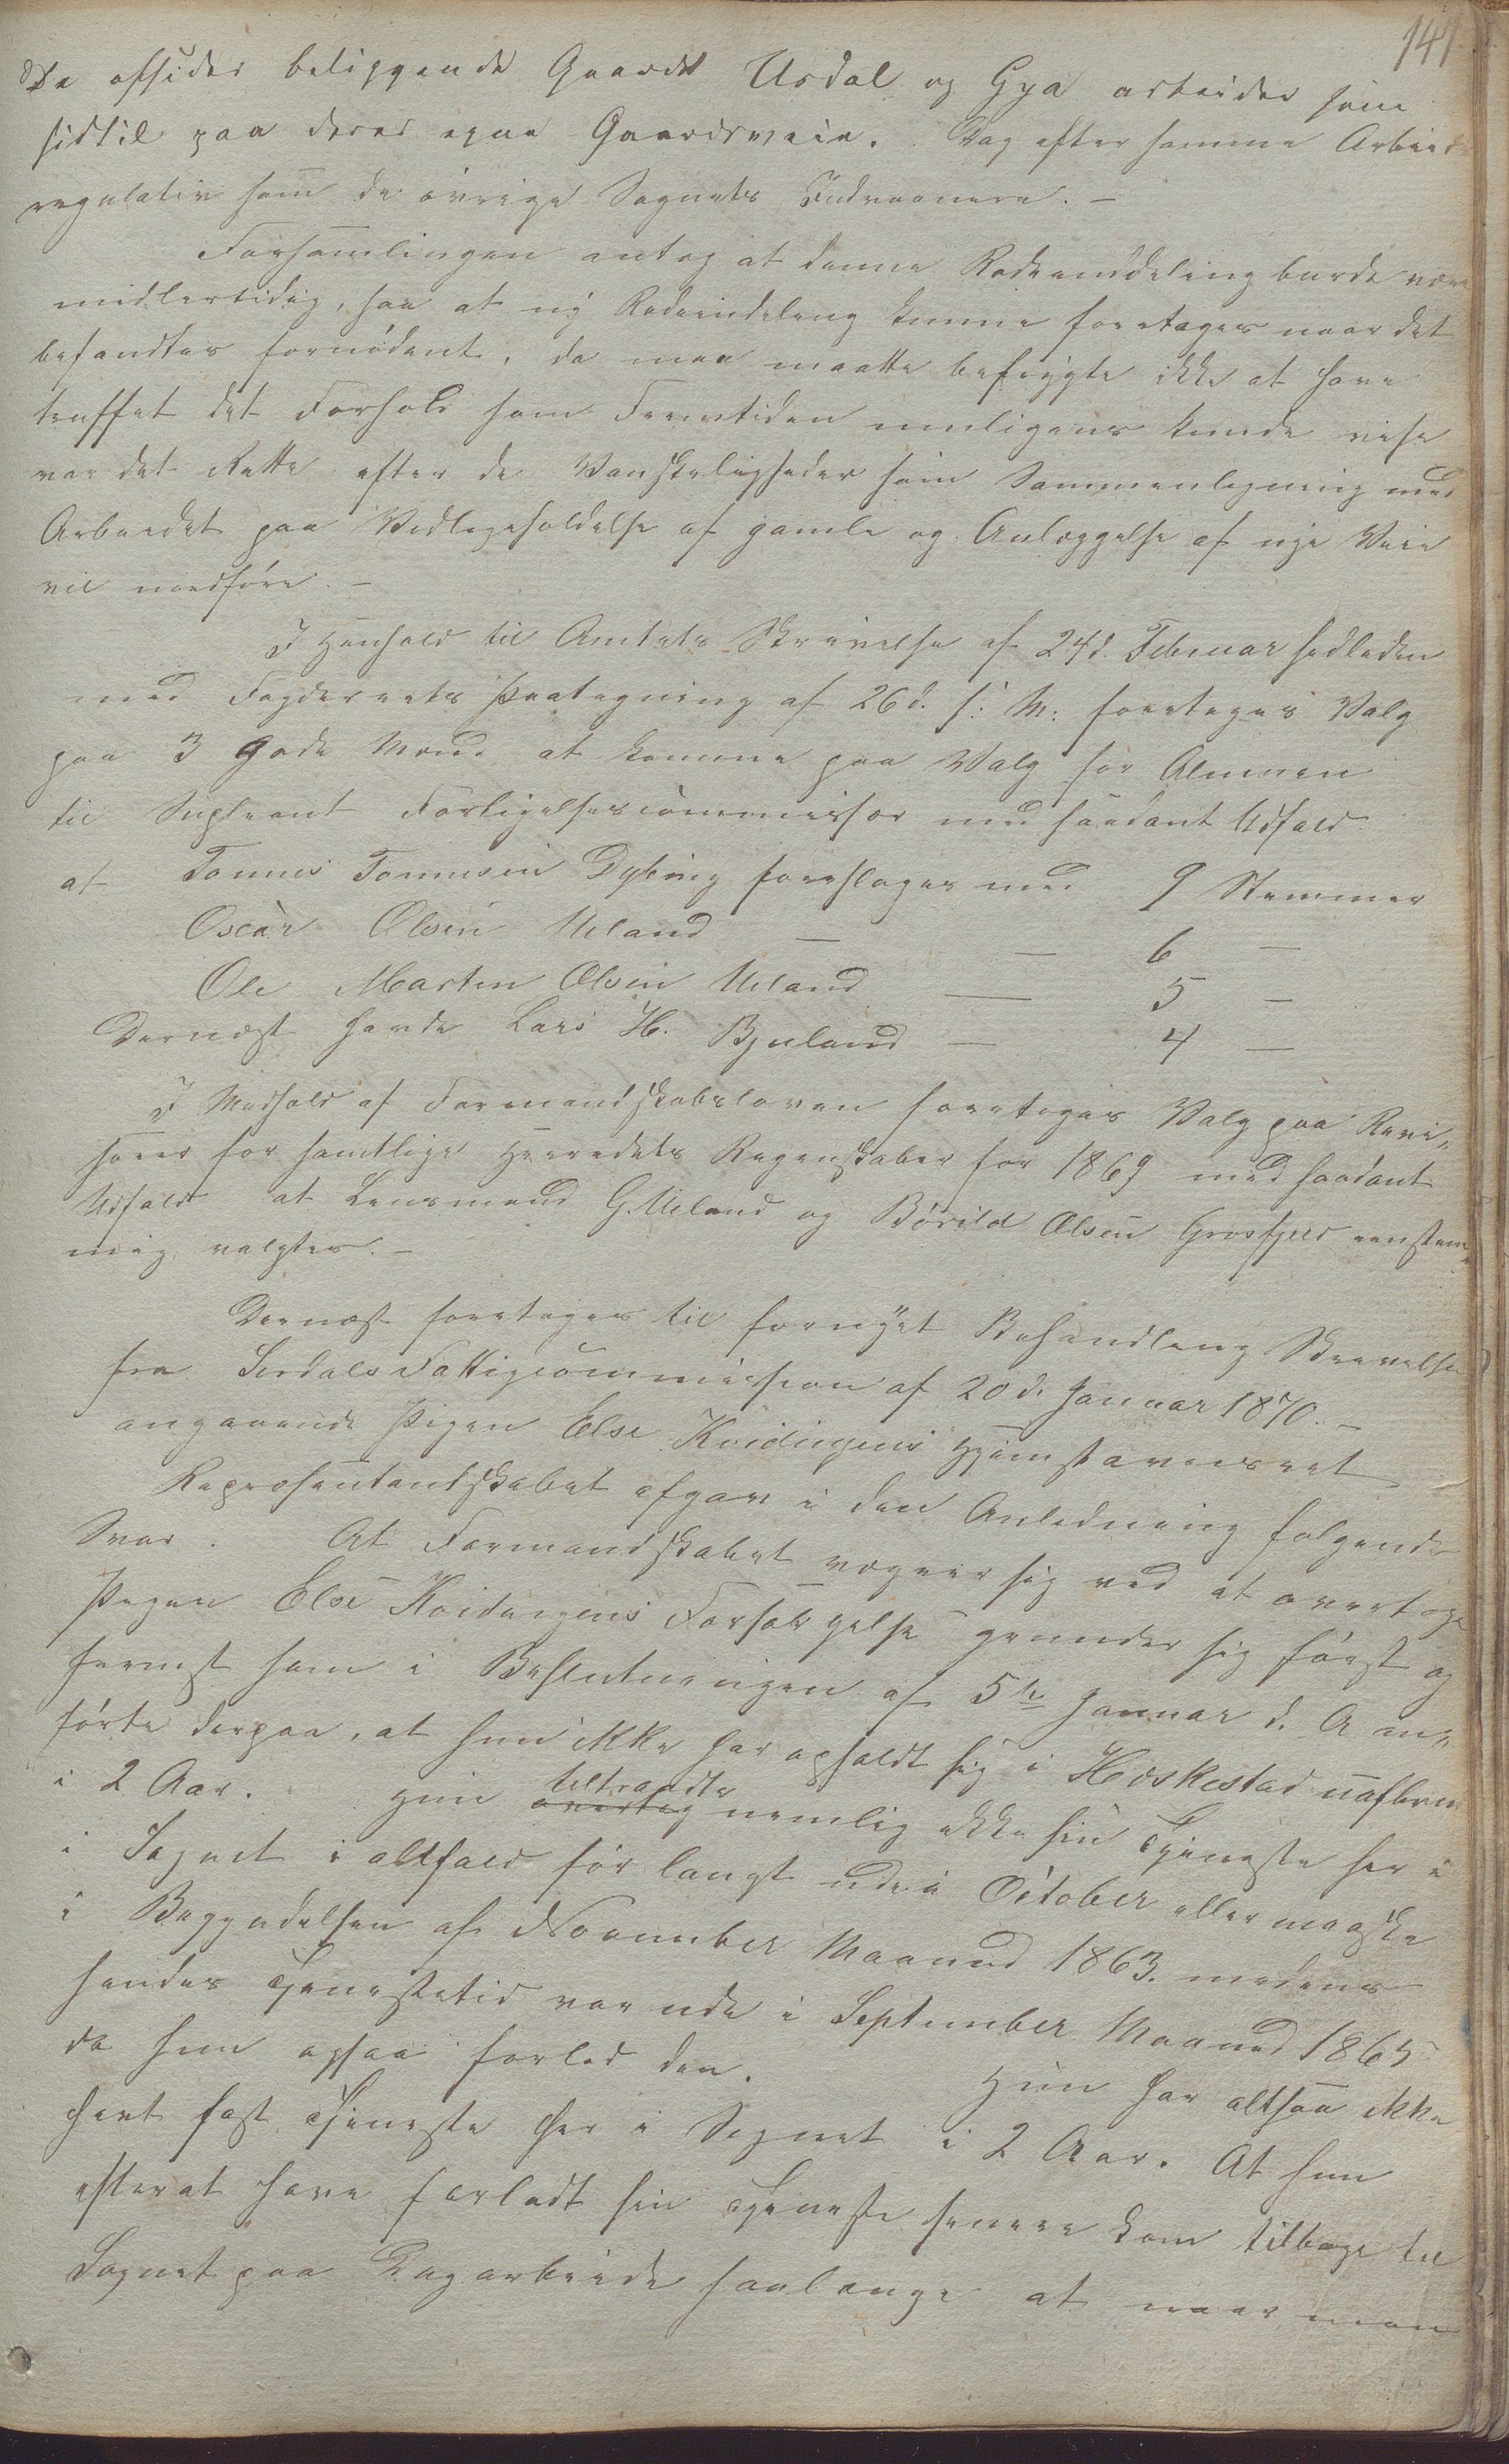 141
De afsides beliggende Gaarde Usdal og Gya arbeider som
hidtil paa deres egne Gaardsveie. Dog efter samme Arbeids
regulativ som de øvrige Sognets Indvaanere. –
Forsamlingen antog at denne Rodeinddeling burde være
midlertidig, saa at ny Rodeindeling kunne foretages naar det
befandtes fornødent, da man maatte befrygte ikke at have
truffet det Forhold som Fremtiden muligens kunde vise
var det Rette efter de Vanskeligheder som Sammenligning med
Arbeidet paa Vedligeholdelse af gamle og Anlæggelse af nye Veie
vil medføre. –
I Henhold til Amtets Skrivelse af 24d. Februar sidleden
med Fogderiets Paategning af 26d. s: M: foretages Valg
paa 3 gode Mænd at komme paa Valg for Almuen
til Supleant Forligelsescommissær med saadant Udfald
at Tønnes Tønnesen Dybing foreslages med 9 Stemmer
Oscar Olsen Ueland — — 6 —
Ole Martin Olsen Ueland — 5 —
Dernæst havde Lars H. Bjuland — 4 —
I Medhold af Formandskabsloven foretages Valg paa Revi„
sorer for samtlige Herredets Regnskaber for 1869 med saadant
Udfald at Lensmand G. Ueland og Børuld Olsen Grøsfjeld eenstem„
mig valgtes. –
Dernæst foretages til fornyet Behandling Skrivelse
fra Sirdals Fattigcommission af 20d. Januar 1870. –
angaaende Pigen Else Kvidingens Hjemstavnsret
Repræsentantskabet afgav i den Anledning følgende
Svar. At Formandskabet vægrer sig ved at overtage
Pigen Else Kvidingens Forsørgelse grunder sig først og
fremst som i Beslutningen af 5te Januar d. A an„
førte derpaa, at hun ikke har opholdt sig i Heskestad uafbrudt
i 2 Aar. Hun overtog tiltraadte nemlig ikke sin Tjeneste her i
i Sognet i altfald før langt ude i October eller maaske
i Begyndelsen af November Maaned 1863. medens
hendes Tjenestetid var ude i September Maaned 1865
da hun ogsaa forlod den. Hun har altsaa ikke
havt fast Tjeneste her i Sognet i 2 Aar. At hun
efterat have forladt sin Tjeneste senere kom tilbage til
Sognet paa Dagarbeide saalænge at naar man